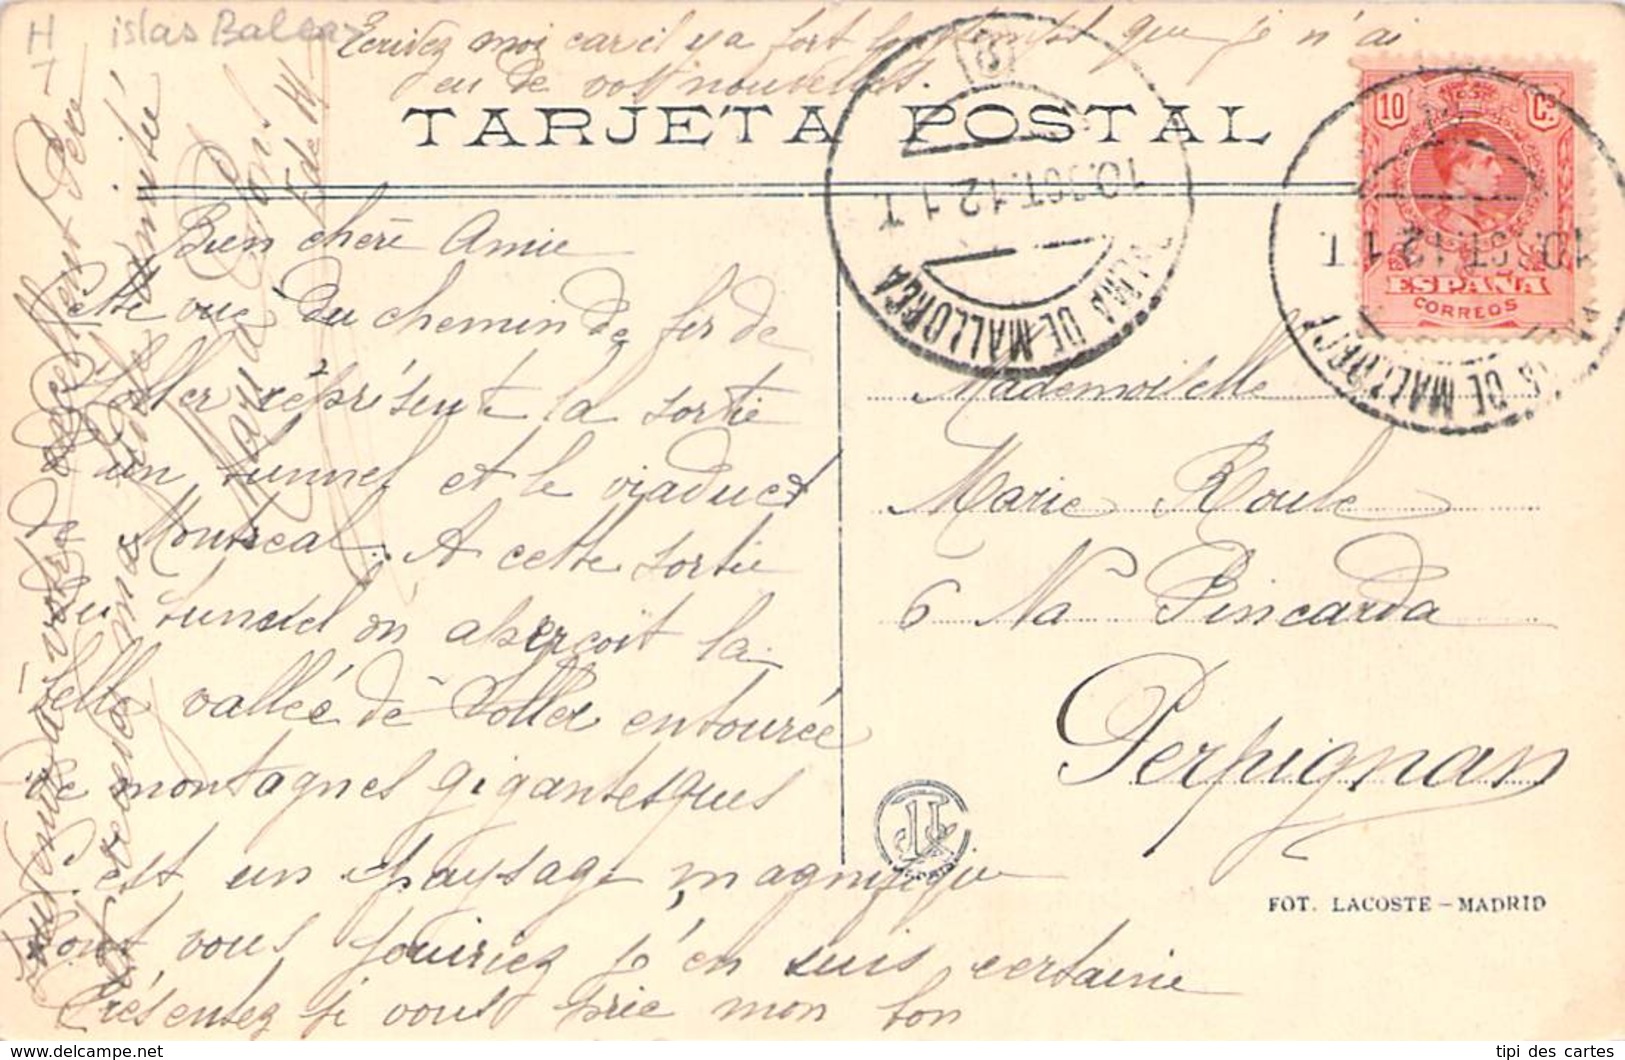 H
islas Balear
Ecrivez moi car il y a fort longtemps que je n'ai
eu de vos nouvelles.
TARJETA POSTAL
10 Cs
ESPAÑA
CORREOS
10.OCT.12 1 T.
PALMA DE MALLORCA
10.OCT.12 1 T.
PALMA DE MALLORCA
Bien chère Amie
Cette vue du chemin de fer de
Soller réprésente la sortie
d'un tunnel et le viaduct
Montreal. A cette sortie
du tunnel on aperçoit la
belle vallée de Soller entourée
de montagnes gigantesques
c'est un paysage magnifique
dont vous jouiriez j'en suis certaine
Présentez je vous prie mon bon
souvenir à votre
de ma
sincère amitié
Maria
Mademoiselle
Marie Roule
6 Na Pincarda
Perpignan
FOT. LACOSTE - MADRID
tipi des cartes